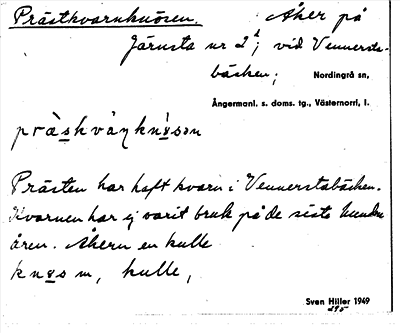 Prästkvarnknösen. Åker på
Järnsta nr 2; vid Vennersta-
bäcken; Nordingrå sn,
Ångermanl. s. doms. tg., Västernorrl. l.
Prästen har haft kvarn i Vennerstabäcken.
Kvarnen har ej varit bruk på de sista hundra
åren. Åkern en kulle
knøs m, kulle,
Sven Hiller 1949
295